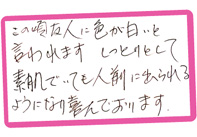 この頃友人に色が白いと
言われます しっとりとして
素肌でいても人前に出られる
ようになり喜んでおります.